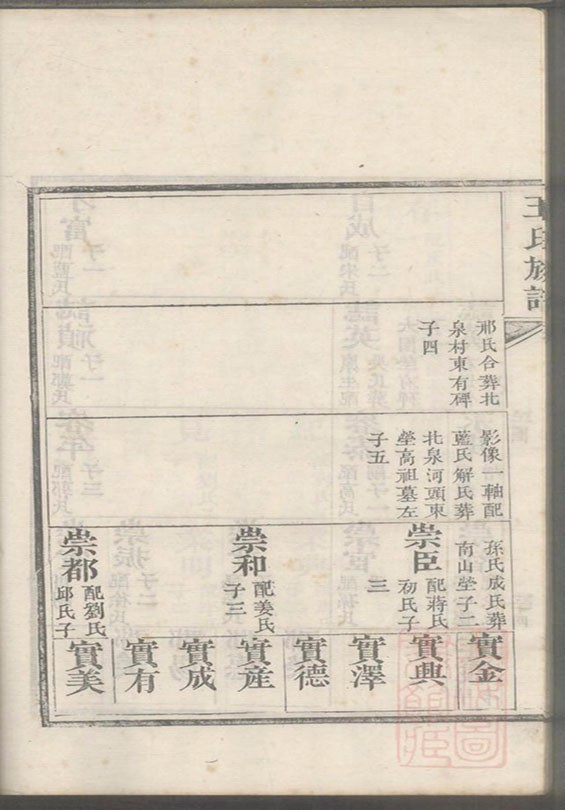 王氏族譜
邢氏合葬北
泉村東有碑
子四
影像一軸配
藍氏解氏葬
北泉河頭東
塋高祖墓左
子五
孫氏成氏葬
南山塋子二
崇臣
配蔣氏
子
三
崇和
配姜氏
子三
崇都
配劉氏
邱氏子
實金
實興
實澤
實德
實産
實成
實有
實美